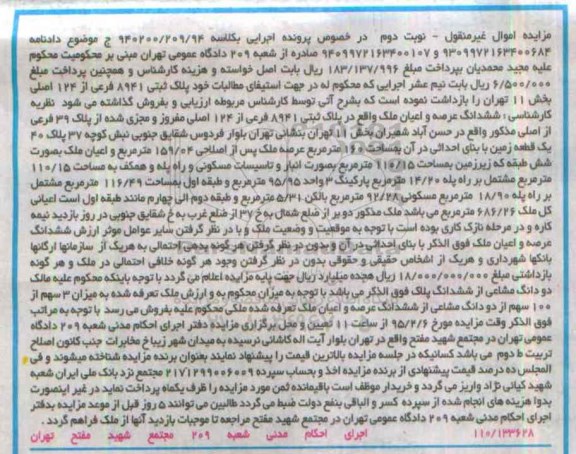 مزایده اموال غیرمنقول - نوبت دوم در خصوص پرونده اجرایی بکلاسه ۹۴۰۲۰۰/۲۰۹/۹۴ ج موضوع دادنامه
۹۳۰۹۹۷۲۱۶۳۴۰۰۶۸۴ و ۹۴۰۹۹۷۲۱۶۳۴۰۰۱۰۷ صادره از شعبه ۲۰۹ دادگاه عمومی تهران مبنی بر محکومیت محکوم
علیه مجید محمدیان بپرداخت مبلغ ۱۸۳/۱۳۷/۹۹۶ ریال بابت اصل خواسته و هزینه کارشناس و همچنین پرداخت مبلغ
۶/۵۰۰/۰۰۰ ریال بابت نیم عشر اجرایی که محکوم له در جهت استیفای مطالبات خود پلاک ثبتی ۸۹۴۱ فرعی از ۱۲۴ اصلی
بخش ۱۱ تهران را بازداشت نموده است که بشرح آتی توسط کارشناس مربوطه ارزیابی و بفروش گذاشته می شود نظریه
کارشناسی : ششدانگ عرصه و اعیان ملک واقع در پلاک ثبتی ۸۹۴۱ فرعی از ۱۲۴ اصلی مفروز و مجزی شده از پلاک ۳۹ فرعی
از اصلی مذکور واقع در حسن آباد شمیران بخش ۱۱ تهران بنشانی تهران بلوار فردوس شقایق جنوبی نبش کوچه ۳۷ پلاک ۴۰
یک قطعه زمین با بنای احداثی در آن بمساحت ۱۶۰ مترمربع عرصه ملک پس از اصلاحی ۱۵۹/۰۴ مترمربع و اعیان ملک بصورت
شش طبقه که زیرزمین بمساحت ۱۱۰/۱۵ مترمربع بصورت انبار و تاسیسات مسکونی و راه پله و همکف به مساحت ۱۱۰/۱۵
مترمربع مشتمل بر راه پله ۱۴/۲۰ مترمربع پارکینگ ۳ واحد ۹۵/۹۵ مترمربع و طبقه اول بمساحت ۱۱۶/۴۹ مترمربع مشتمل
بر راه پله ۱۸/۹۰ مترمربع مسکونی ۹۲/۲۸ مترمربع بالکن ۵/۳۱ مترمربع و طبقه دوم الی چهارم مانند طبقه اول است اعیانی
کل ملک ۶۸۶/۲۶ مترمربع می باشد ملک مذکور دو بر از ضلع شمال به خ ۳۷ از ضلع غرب به خ شقایق جنوبی در روز بازدید نیمه
کاره و در مرحله نازک کاری بوده است با توجه به موقعیت و وضعیت ملک و با در نظر گرفتن سایر عوامل موثر ارزش ششدانگ
عرصه و اعیان ملک فوق الذکر با بنای احداثی در آن و بدون در نظر گرفتن هر گونه بدهی احتمالی به هریک از سازمانها ارگانها
بانکها شهرداری و هریک از اشخاص حقیقی و حقوقی بدون در نظر گرفتن وجود هر گونه خلافی احتمالی در ملک و هر گونه
بازداشتی مبلغ ۱۸/۰۰۰/۰۰۰/۰۰۰ ریال هجده میلیارد ریال جهت پایه مزایده اعلام می گردد با توجه باینکه محکوم علیه مالک
دو دانگ مشاعی از ششدانگ پلاک فوق الذکر می باشد با توجه به میزان محکوم به و ارزش ملک تعرفه شده به میزان ۳ سهم از
۱۰۰ سهم از دو دانگ مشاعی از ششدانگ عرصه و اعیان ملک تعرفه شده ملکی محکوم علیه بفروش می رسد با توجه به مراتب
فوق الذکر وقت مزایده مورخ ۹۵/۲/۶ از ساعت ۱۱ تعیین و محل برگزاری مزایده دفتر اجرای احکام مدنی شعبه ۲۰۹ دادگاه
عمومی تهران در مجتمع شهید مفتح واقع در تهران بلوار آیت اله کاشانی نرسیده به میدان شهر زیبا خ مخابرات جنب کانون اصلاح
تربیت ط دوم می باشد کسانیکه در جلسه مزایده بالاترین قیمت را پیشنهاد نمایند بعنوان برنده مزایده شناخته میشوند و فی
المجلس ده درصد قیمت پیشنهادی از برنده مزایده اخذ و بحساب سپرده ۲۱۷۱۲۹۹۰۰۶۰۰۹ مجتمع نزد بانک ملی ایران شعبه
شهید کیانی نژاد واریز می گردد و خریدار موظف است باقیمانده ثمن مورد مزایده را ظرف یکماه پرداخت نماید در غیر اینصورت
بدوا هزینه های انجام شده از سپرده کسر و الباقی بنفع دولت ضبط می گردد طالبین می توانند ۵ روز قبل از موعد مزایده بدفتر
اجرای احکام مدنی شعبه ۲۰۹ دادگاه عمومی تهران در مجتمع شهید مفتح مراجعه تا موجبات بازدید آنها از ملک فراهم گردد .
۱۱۰/۱۳۳۶۲۸ اجرای احکام مدنی شعبه ۲۰۹ مجتمع شهید مفتح تهران